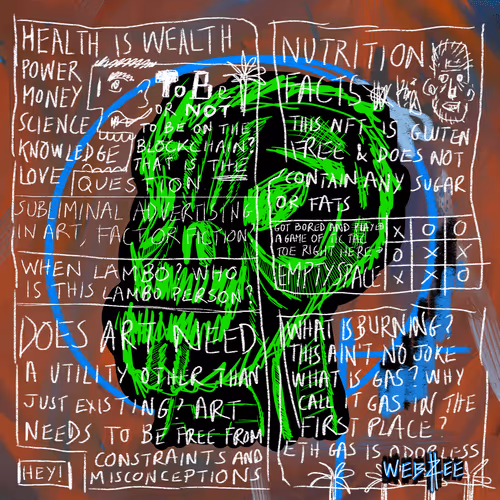 HEALTH IS WEALTH
POWER
MONEY
SCIENCE
KNOWLEDGE
LOVE
To Be
OR NOT
TO BE ON THE
BLOCKCHAIN?
THAT IS THE
QUESTION
SUBLIMINAL ADVERTISING
IN ART FACT OR FICTION
WHEN LAMBO? WHO
IS THIS LAMBO PERSON?
DOES ART NEED
A UTILITY OTHER THAN
JUST EXISTING? ART
NEEDS TO BE FREE FROM
CONSTRAINTS AND
MISCONCEPTIONS
HEY!
NUTRITION
FACTS
THIS NFT IS GLUTEN
FREE & DOES NOT
CONTAIN ANY SUGAR
OR FATS
GOT BORED AND PLAYED
A GAME OF TIC TAC
TOE RIGHT HERE
EMPTY SPACE
X O O
O X X
X X O
WHAT IS BURNING?
THIS AIN'T NO JOKE
WHAT IS GAS? WHY
CALL IT GAS IN THE
FIRST PLACE?
ETH GAS IS ODORLESS
WEBZEE